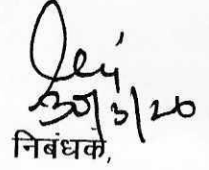 30/3/20
निबंधक,